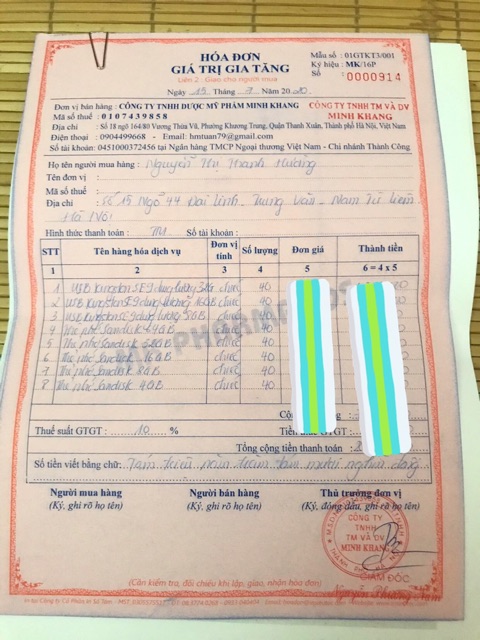 HÓA ĐƠN
GIÁ TRỊ GIA TĂNG
Liên 2: Giao cho người mua
Ngày 15 tháng 7 năm 2020
Mẫu số : 01GTKT3/001
Ký hiệu : MK/16P
Số : 0000914
Đơn vị bán hàng : CÔNG TY TNHH DƯỢC MỸ PHẨM MINH KHANG
CÔNG TY TNHH TM VÀ DV
MINH KHANG
Mã số thuế : 0107439858
Địa chỉ : Số 18 ngõ 164/80 Vương Thừa Vũ, Phường Khương Trung, Quận Thanh Xuân, Thành phố Hà Nội, Việt Nam
Điện thoại : 0904499668 - Email: hmtuan79@gmail.com
Số tài khoản: 0451000372456 tại Ngân hàng TMCP Ngoại thương Việt Nam - Chi nhánh Thành Công
Họ tên người mua hàng : Nguyễn Thị Thanh Hương
Tên đơn vị :
Mã số thuế :
Địa chỉ : Số 15 Ngõ 44 Đại Linh - Trung Văn - Nam Từ Liêm
Hà Nội
Hình thức thanh toán : TM Số tài khoản:
STT Tên hàng hóa dịch vụ Đơn vị tính Số lượng Đơn giá Thành tiền
1 2 3 4 5 6 = 4 x 5
1 USB Kingston SE9 dung lượng chiếc 40
2 USB Kingston SE9 dung lượng 16GB chiếc 40
3 USB Kingston SE9 dung lượng 8GB chiếc 40
4 Thẻ nhớ Sandisk 64GB chiếc 40
5 Thẻ nhớ Sandisk chiếc 40
6 Thẻ nhớ Sandisk 16GB chiếc 40
7 Thẻ nhớ Sandisk 8GB chiếc 40
8 Thẻ nhớ Sandisk 4GB chiếc 40
Thuế suất GTGT : 10 %
Tổng cộng tiền thanh toán :
Số tiền viết bằng chữ: Tám triệu năm trăm tám mươi nghìn đồng
Người mua hàng Người bán hàng Thủ trưởng đơn vị
(Ký, ghi rõ họ tên) (Ký, ghi rõ họ tên) (Ký, đóng dấu, ghi rõ họ tên)
CÔNG TY
TNHH
TM VÀ DV
MINH KHANG
GIÁM ĐỐC
(Cần kiểm tra, đối chiếu khi lập, giao, nhận hóa đơn)